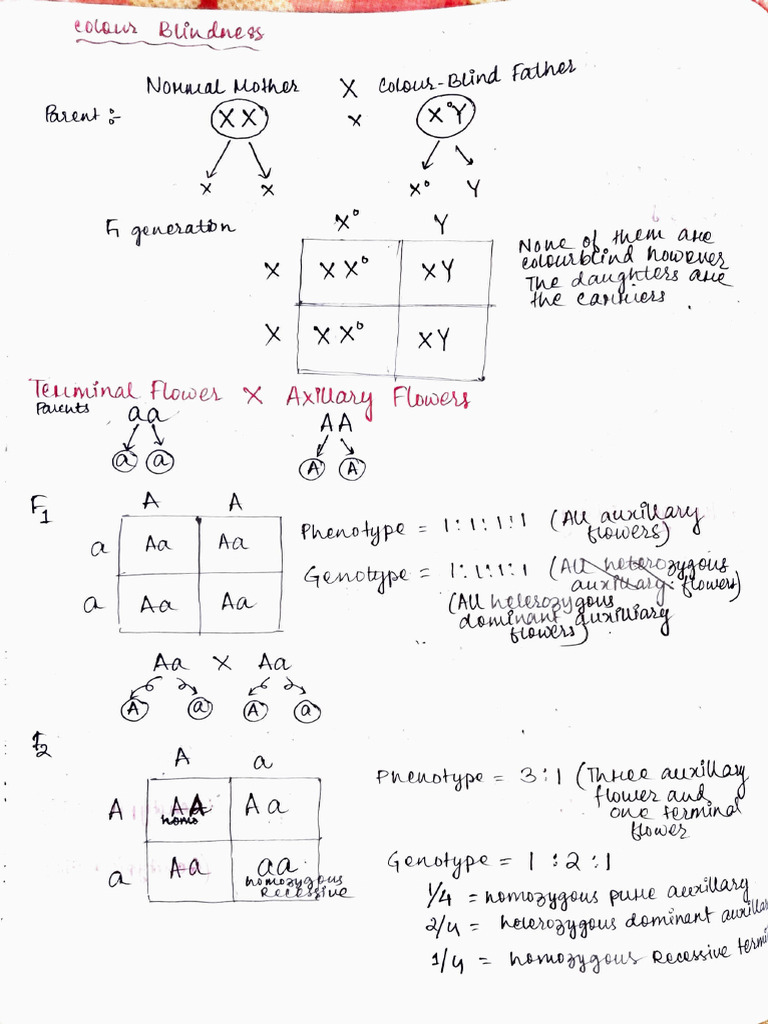 Colour Blindness
Normal Mother X Colour-Blind Father
Parent :- XX x X°Y
x x X° Y
F1 generation
X° Y
X XX° XY
X XX° XY
None of them are
colourblind however
The daughters are
the carriers.
Terminal Flower X Axillary Flowers
Parents aa AA
a a A A
F1
A A
a Aa Aa
a Aa Aa
Phenotype = 1:1:1:1 (All auxillary
flowers)
Genotype = 1:1:1:1 (All heterozygous
auxillary flowers)
(All heterozygous
dominant auxilliary
flowers)
Aa X Aa
A a A a
F2
A a
A AA Aa
homo
a Aa aa
homozygous
Recessive
Phenotype = 3:1 (Three auxillary
flower and
one terminal
flower
Genotype = 1:2:1
1/4 = homozygous pure auxillary
2/4 = heterozygous dominant auxillar
1/4 = homozygous Recessive termi